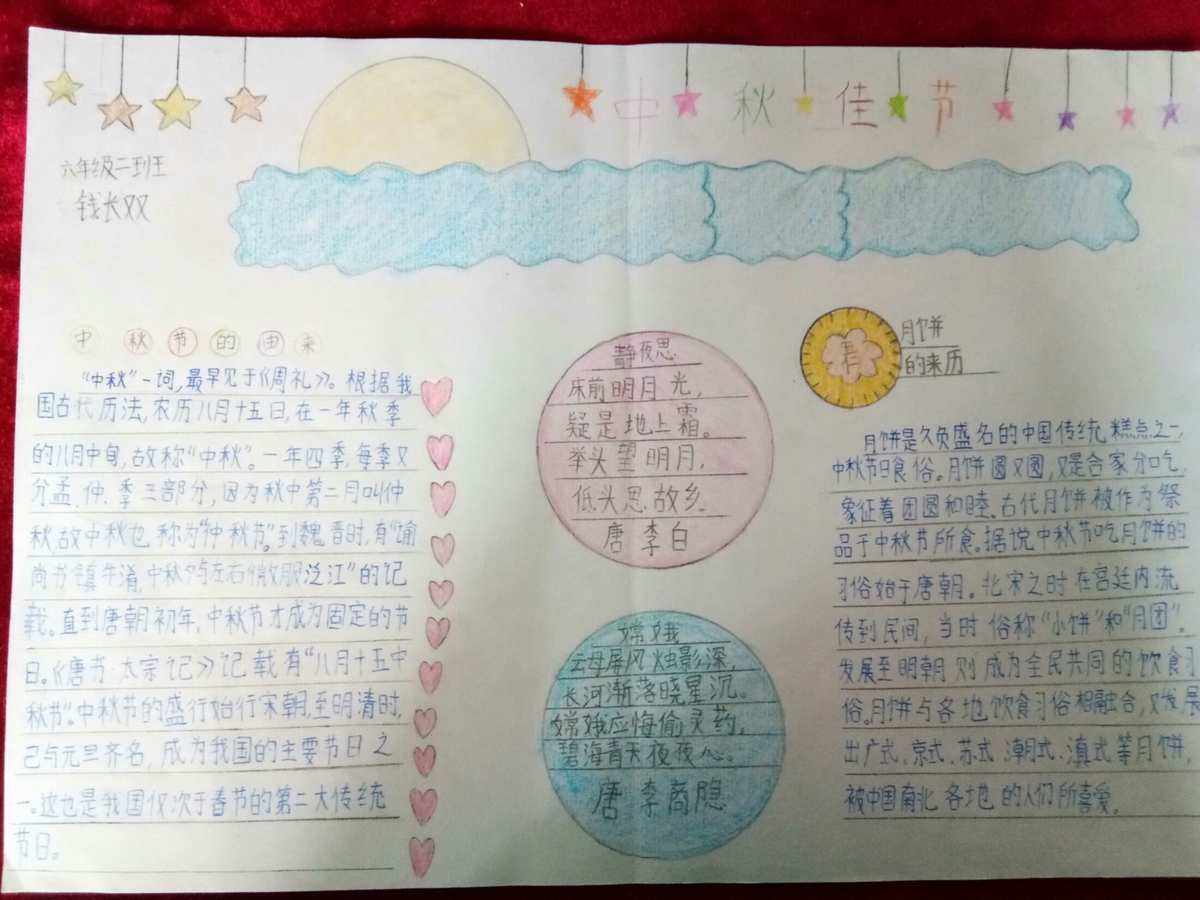 中秋佳节
六年级二班王
钱长双
中秋节的由来
“中秋”一词，最早见于《周礼》。根据我
国古代历法，农历八月十五日，在一年秋季
的八月中旬，故称“中秋”。一年四季，每季又
分孟、仲、季三部分，因为秋中第二月叫仲
秋，故中秋也称为“仲秋节”。到魏晋时，有“谕
尚书镇牛淆，中秋夕与左右微服泛江”的记
载。直到唐朝初年，中秋节才成为固定的节
日。《唐书·太宗记》记载有“八月十五中
秋节”。中秋节的盛行始行宋朝，至明清时，
己与元旦齐名，成为我国的主要节日之
一。这也是我国仅次于春节的第二大传统
节日。
静夜思
床前明月光，
疑是地上霜。
举头望明月，
低头思故乡。
唐 李白
嫦娥
云母屏风烛影深，
长河渐落晓星沉。
嫦娥应悔偷灵药，
碧海青天夜夜心。
唐 李商隐
春
月饼
的来历
月饼是久负盛名的中国传统糕点之一，
中秋节日食俗。月饼圆又圆，又是合家分吃，
象征着团圆和睦。古代月饼被作为祭
品于中秋节所食。据说中秋节吃月饼的
习俗始于唐朝。北宋之时在宫廷内流
传到民间，当时俗称“小饼”和“月团”。
发展至明朝则成为全民共同的饮食习
俗。月饼与各地饮食习俗相融合，又发展
出广式、京式、苏式、潮式、滇式等月饼，
被中国南北各地的人们所喜爱。